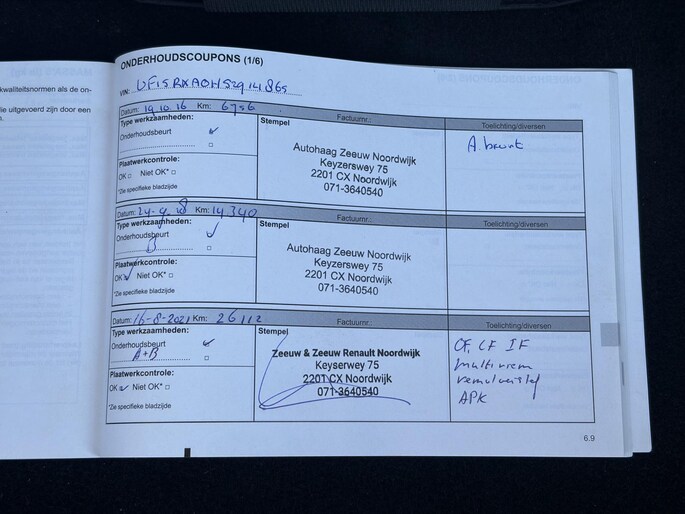 kwaliteitsnormen als de on-
die uitgevoerd zijn door een
ONDERHOUDSCOUPONS (1/6)
VIN: UF15RXAOH529.14.865
Datum: 19.10.16 Km: 6756
Factuurnr.:
Toelichting/diversen
Type werkzaamheden:
Onderhoudsbeurt
Plaatwerkcontrole:
OK Niet OK*
*Zie specifieke bladzijde
Stempel
Autohaag Zeeuw Noordwijk
Keyzerswey 75
2201 CX Noordwijk
071-3640540
A. beurt
Datum: 24-9-18 Km: 14.340
Factuurnr.:
Toelichting/diversen
Type werkzaamheden:
Onderhoudsbeurt
B
Plaatwerkcontrole:
OK Niet OK*
*Zie specifieke bladzijde
Stempel
Autohaag Zeeuw Noordwijk
Keyzerswey 75
2201 CX Noordwijk
071-3640540
Datum: 16-8-2021 Km: 26112
Factuurnr.:
Toelichting/diversen
Type werkzaamheden:
Onderhoudsbeurt
A+B
Plaatwerkcontrole:
OK Niet OK*
*Zie specifieke bladzijde
Stempel
Zeeuw & Zeeuw Renault Noordwijk
Keyserwey 75
2201 CX Noordwijk
071-3640540
OF, LF IF
multiriem
remvloeistof
APK
6.9